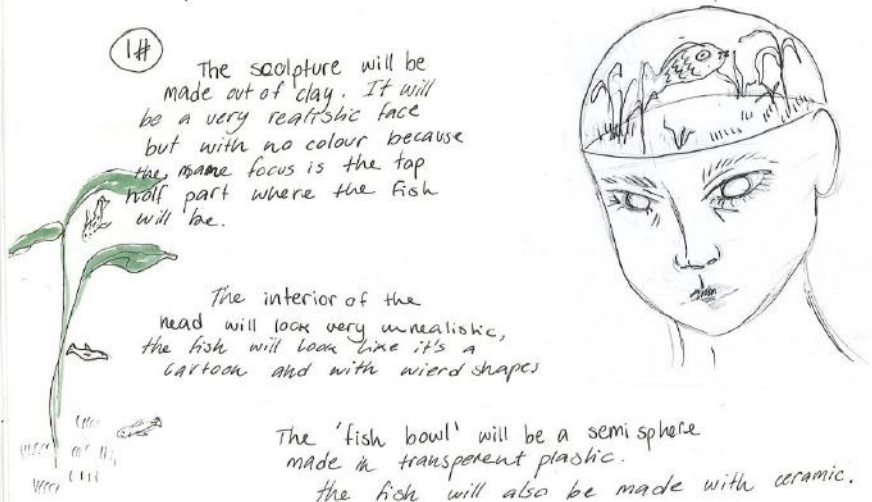 1#
The scolpture will be
made out of clay. It will
be a very realistic face
but with no colour because
the mame focus is the top
half part where the fish
will be.
The interior of the
head will look very unrealistic,
the fish will look like it's a
cartoon and with wierd shapes
The 'fish bowl' will be a semi sphere
made in transperent plastic.
the fish will also be made with ceramic.